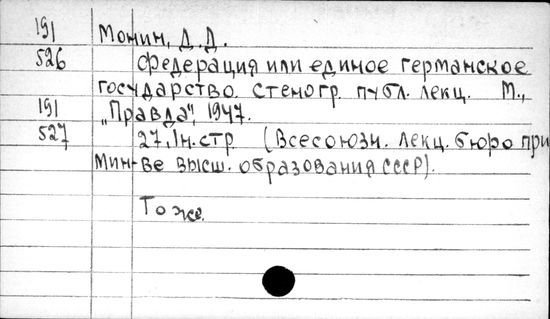 191 Монин, Д. Д.
526 Федерация или единое германское
государство. Стеногр. публ. лекц. М.,
191 „Правда", 1947.
527 27, 1н. стр (Всесоюзн. лекц. бюро при
Мин-ве высш. образования СССР).
То же.